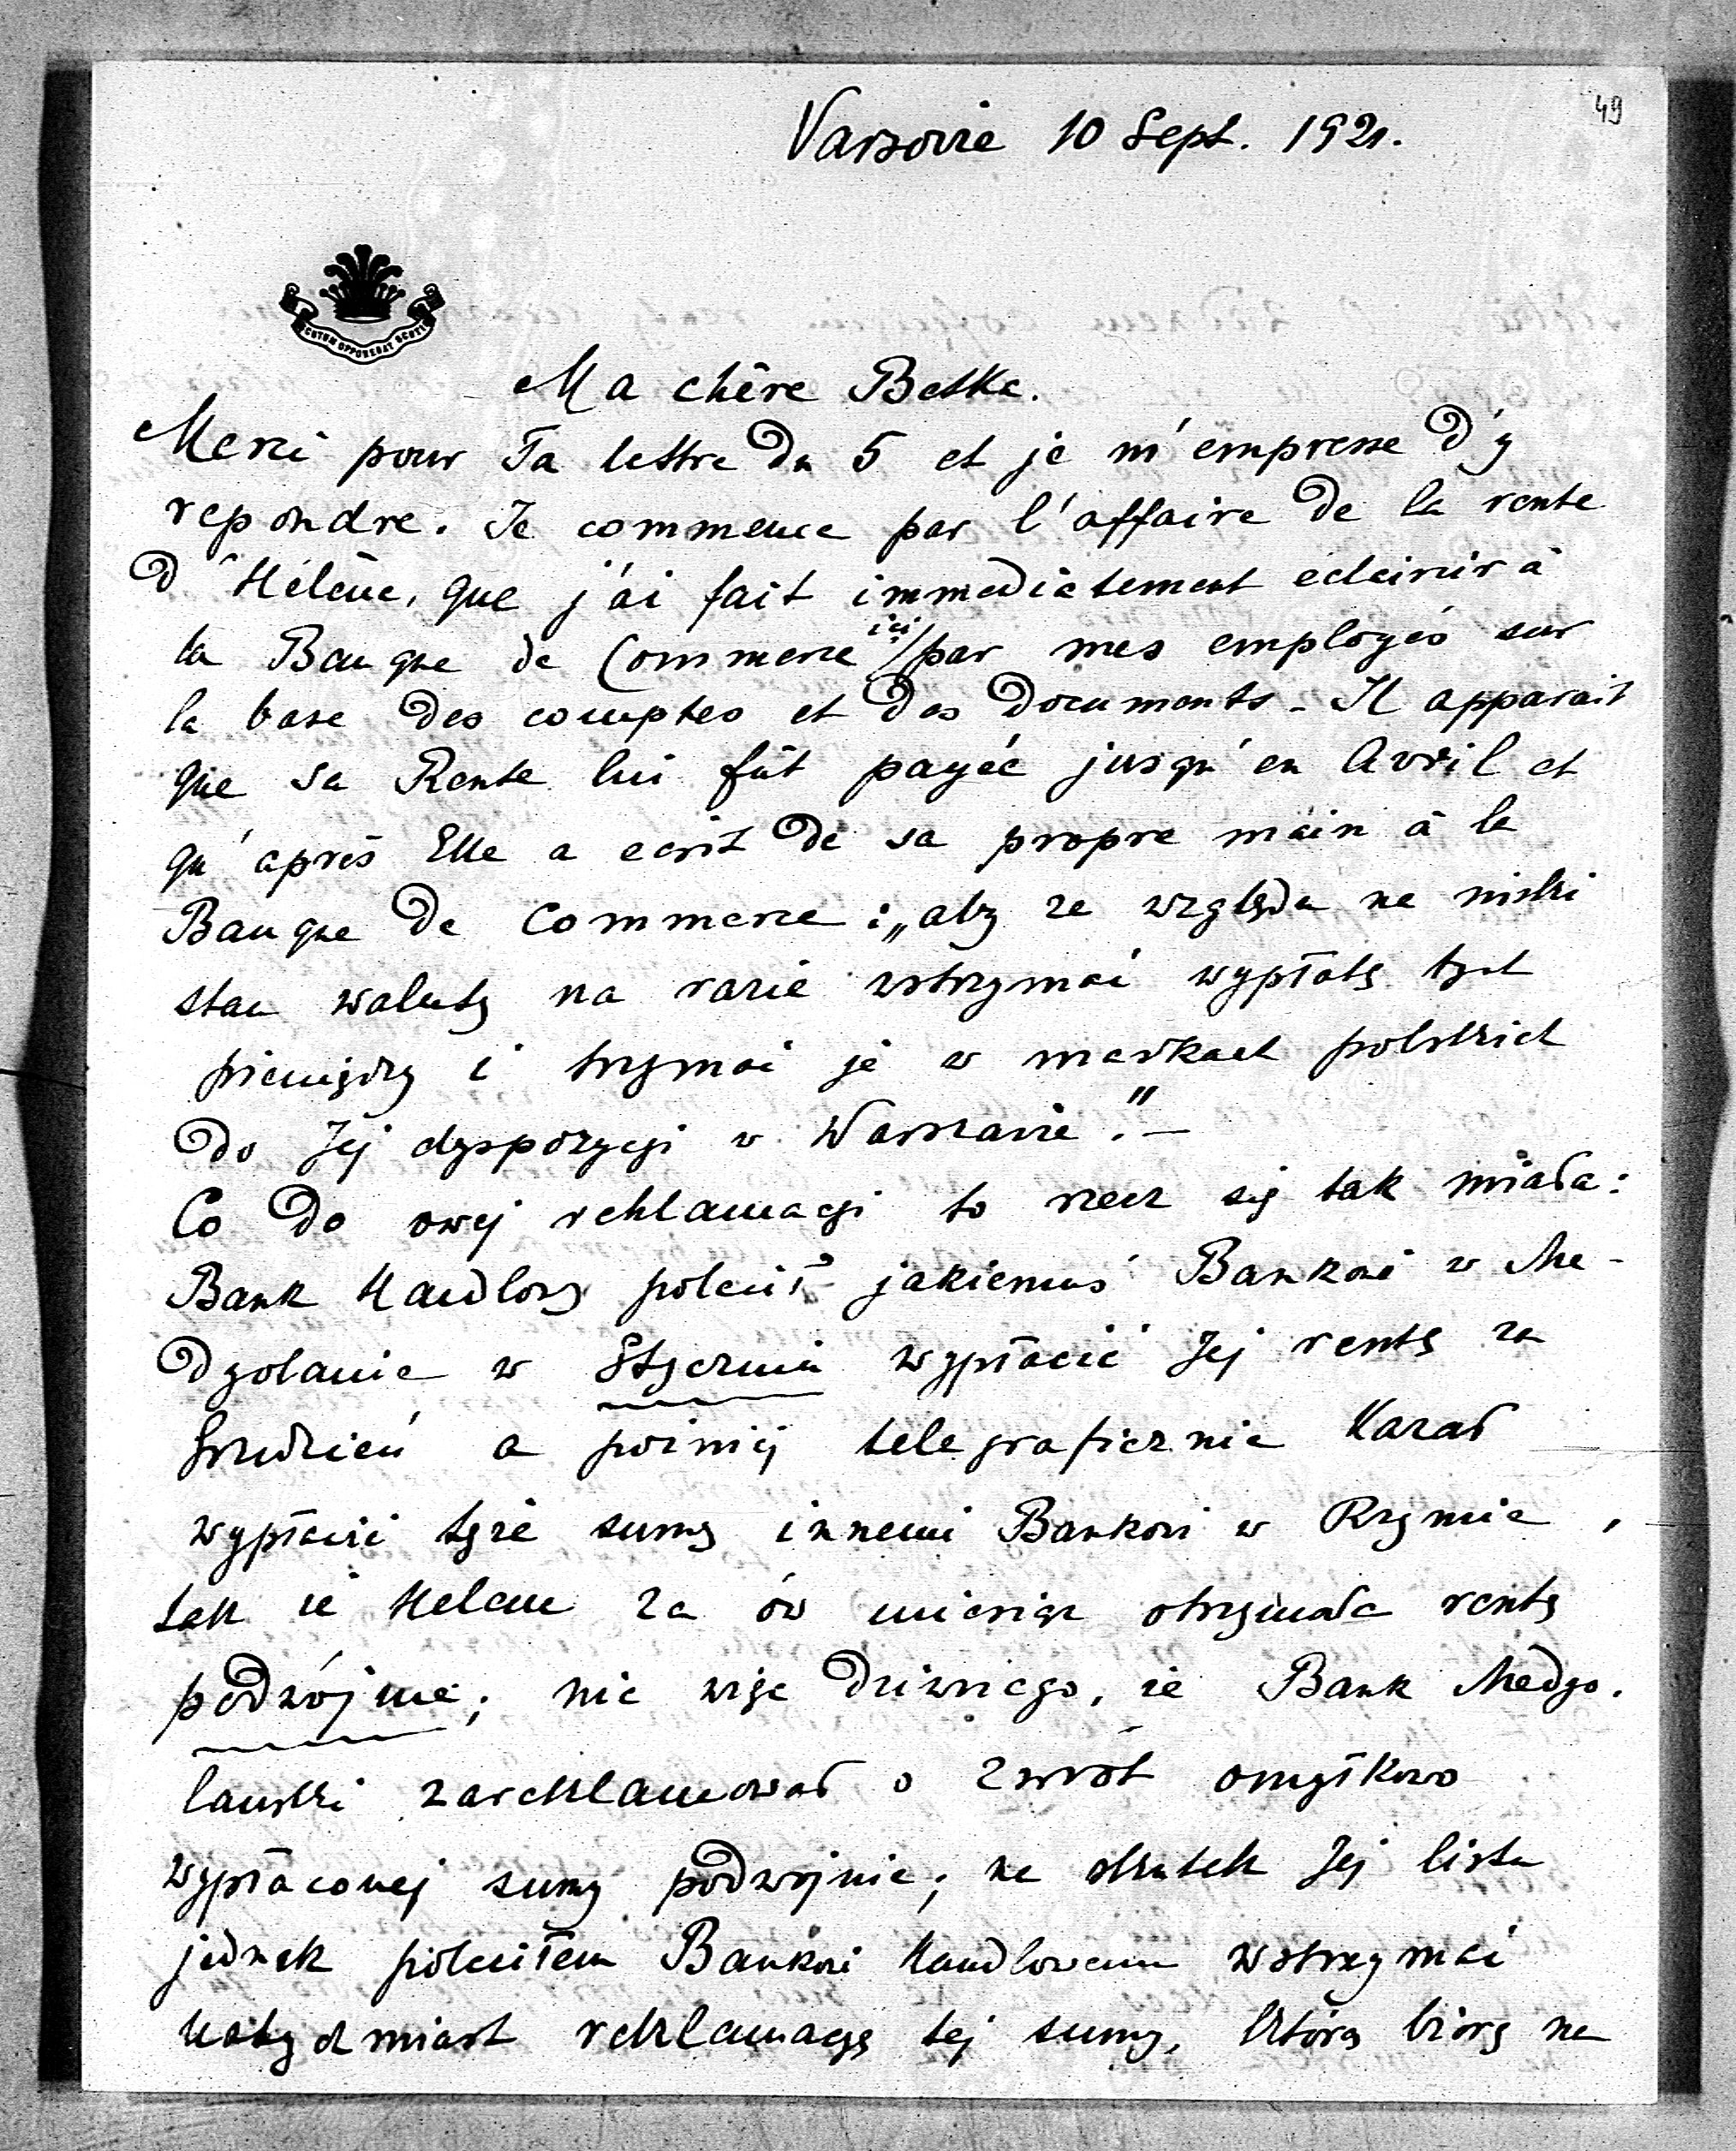 49
Varsovie 10 Sept. 1921.
SCUTUM OPPONEBAT SCUTIS
Ma chère Betka.
Merci pour Ta lettre du 5 et je m'empresse d'y
repondre. Je commence par l'affaire de la rente
d'Hélène, que j'ai fait immediatement eclaircir à
la Banque de Commerce ici par mes employés sur
la base des comptes et des documents - Il apparait
que sa Rente lui fût payée jusqu'en Avril et
qu'après Elle a ecrit de sa propre main à la
Banque de Commerce : „aby ze względu na niski
stan waluty na razie wstrzymać wypłatę tych
pieniędzy i trzymać je w markach polskich
do Jej dyspozycji w Warszawie". —
Co do owej reklamacji to rzecz się tak miała:
Bank Handlowy polecił jakiemuś Bankowi w Me-
dyolanie w Styczniu wypłacić Jej rentę za
Grudzień a poźniej telegraficznie kazał
wypłacić tęże sumę innemu Bankowi w Rzymie,
tak że Helena za ów miesiąc otrzymała rentę
podwójnie; nic więc dziwnego, że Bank Medyo-
lański zareklamował o zwrot omyłkowo
wypłaconej sumy podwójnie; na skutek Jej listu
jednak poleciłem Bankowi Handlowemu wstrzymać
natychmiast reklamację tej sumy, którą biorę na